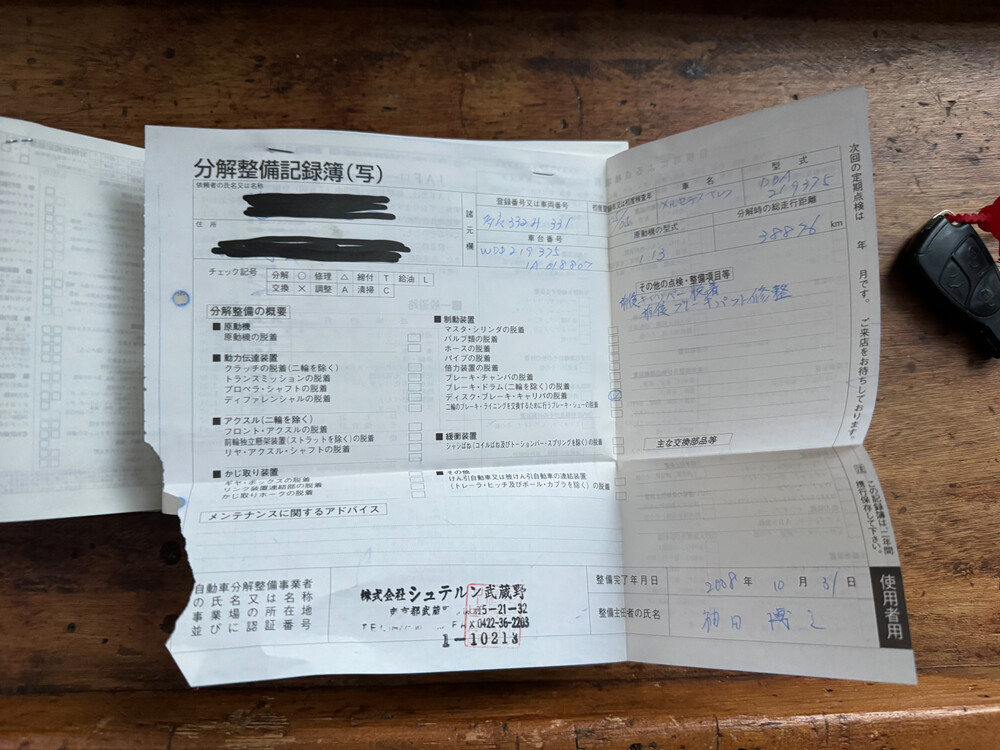 分解整備記録簿(写)
依頼者の氏名又は名称
住所
諸元欄
登録番号又は車両番号
331
車台番号
WDB219375
1A 018807
車名
メルセデスベンツ
型式
DBA
219375
原動機の型式
113
分解時の総走行距離
38826 km
チェック記号
分解 ○ 修理 △ 締付 T 給油 L
交換 × 調整 A 清掃 C
その他の点検・整備項目等
前後キャリパー脱着
前後ブレーキパット修整
分解整備の概要
■ 原動機
原動機の脱着
■ 動力伝達装置
クラッチの脱着(二輪を除く)
トランスミッションの脱着
プロペラ・シャフトの脱着
ディファレンシャルの脱着
■ アクスル(二輪を除く)
フロント・アクスルの脱着
前輪独立懸架装置(ストラットを除く)の脱着
リヤ・アクスル・シャフトの脱着
■ かじ取り装置
ギヤ・ボックスの脱着
リンク装置連結部の脱着
かじ取りホークの脱着
■ 制動装置
マスタ・シリンダの脱着
バルブ類の脱着
ホースの脱着
パイプの脱着
倍力装置の脱着
ブレーキ・チャンバの脱着
ブレーキ・ドラム(二輪を除く)の脱着
ディスク・ブレーキ・キャリパの脱着
二輪のブレーキ・ライニングを交換するために行うブレーキ・シューの脱着
■ 緩衝装置
シャシばね(コイルばね及びトーションバー・スプリングを除く)の脱着
■ その他
けん引自動車又は被けん引自動車の連結装置
(トレーラ・ヒッチ及びボール・カプラを除く)の脱着
主な交換部品等
メンテナンスに関するアドバイス
自動車分解整備事業者
の氏名又は名称
事業場の所在地
並びに認証番号
株式会社シュテルン武蔵野
東京都武蔵 5-21-32
FAX 0422-36-2203
1-10213
整備完了年月日
2008 年 10 月 31 日
整備主任者の氏名
使用者用
次回の定期点検は 年 月です。ご来店をお待ちしております。
注 この記録簿は二年間
携行保存して下さい。